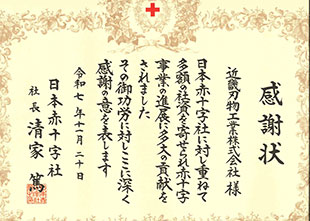 感謝状
近畿刃物工業株式会社 様
日本赤十字社に対し重ねて
多額の社資を寄せられ赤十字
事業の進展に多大の貢献を
されました
その御功労に対しここに深く
感謝の意を表します
令和七年十一月二十日
日本赤十字社
社長 清家 篤